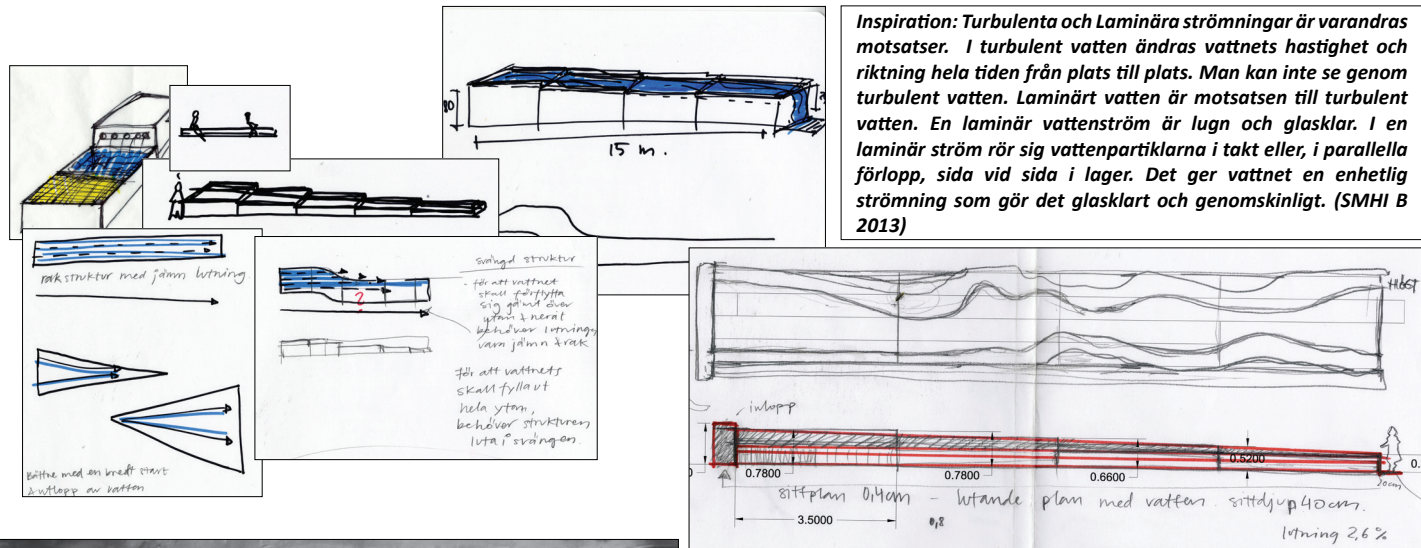 Inspiration: Turbulenta och Laminära strömningar är varandras
motsatser. I turbulent vatten ändras vattnets hastighet och
riktning hela tiden från plats till plats. Man kan inte se genom
turbulent vatten. Laminärt vatten är motsatsen till turbulent
vatten. En laminär vattenström är lugn och glasklar. I en
laminär ström rör sig vattenpartiklarna i takt eller, i parallella
förlopp, sida vid sida i lager. Det ger vattnet en enhetlig
strömning som gör det glasklart och genomskinligt. (SMHI B
2013)
80
15 m.
rak struktur med jämn lutning
Bättre med en bredt start
& utlopp av vatten
?
svängd struktur
- för att vattnet
skall förflytta
sig jämnt över
ytan & neråt
behöver lutningen
vara jämn & rak
För att vattnets
skall fylla ut
hela ytan,
behöver strukturen
luta i svängen.
inlopp
0.7800
0.7800
0.6600
0.5200
0.
20cm
sittplan 0,4cm - lutande plan med vatten. sittdjup 40cm.
3.5000
0,8
lutning 2,6 %